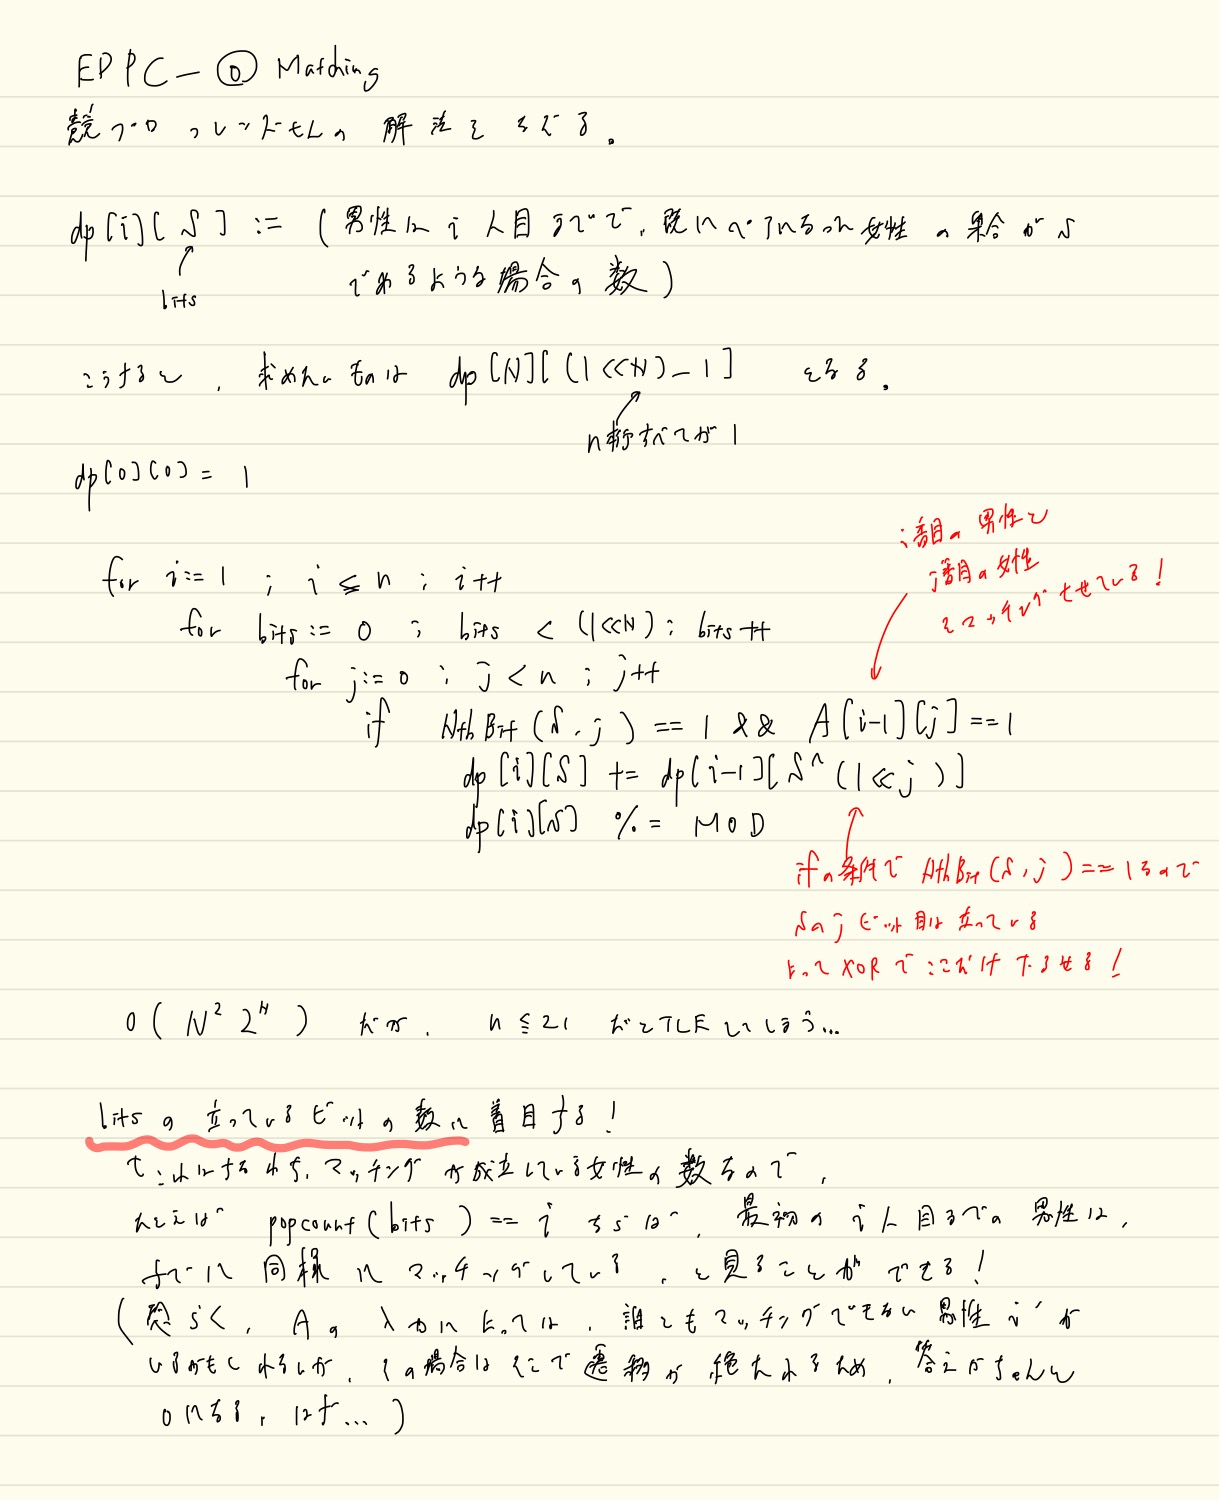 EDPC - O Matching
競プロフレンズさんの解法をみる。
dp[i][S] := (男性は i 人目までで、既にペアになった女性の集合が S
であるような場合の数)
bits
こうすると、求めたいものは dp[N][(1<<N)-1] となる。
n桁すべてが1
dp[0][0] = 1
i番目の男性と
j番目の女性
をマッチングさせている!
for i:=1 ; i ≦ n ; i++
for bits := 0 ; bits < (1<<N) ; bits++
for j:=0 ; j < n ; j++
if NthBit(S, j) == 1 && A[i-1][j] == 1
dp[i][S] += dp[i-1][S^(1<<j)]
dp[i][S] %= MOD
ifの条件で NthBit(S, j) == 1なので
Sの j ビット目は立っている
よって XOR でここだけ
O(N² 2^N) だが、n ≦ 21 だと TLE してしまう...
bits の立っているビットの数に着目する!
これはすなわち、マッチングが成立している女性の数なので、
たとえば popcount(bits) == i ならば、最初の i 人目までの男性は、
すでに同様にマッチングしている、と見ることができる!
(恐らく、Aの入力によっては、誰ともマッチングできない男性 i' が
いるかもしれないが、その場合はそこで遷移が絶たれるため、答えがちゃんと
0になる、はず...)